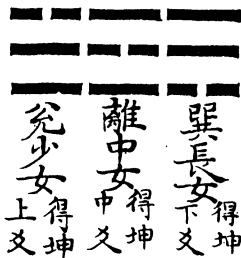 巽長女
得坤
下爻
離中女
得坤
中爻
兌少女
得坤
上爻